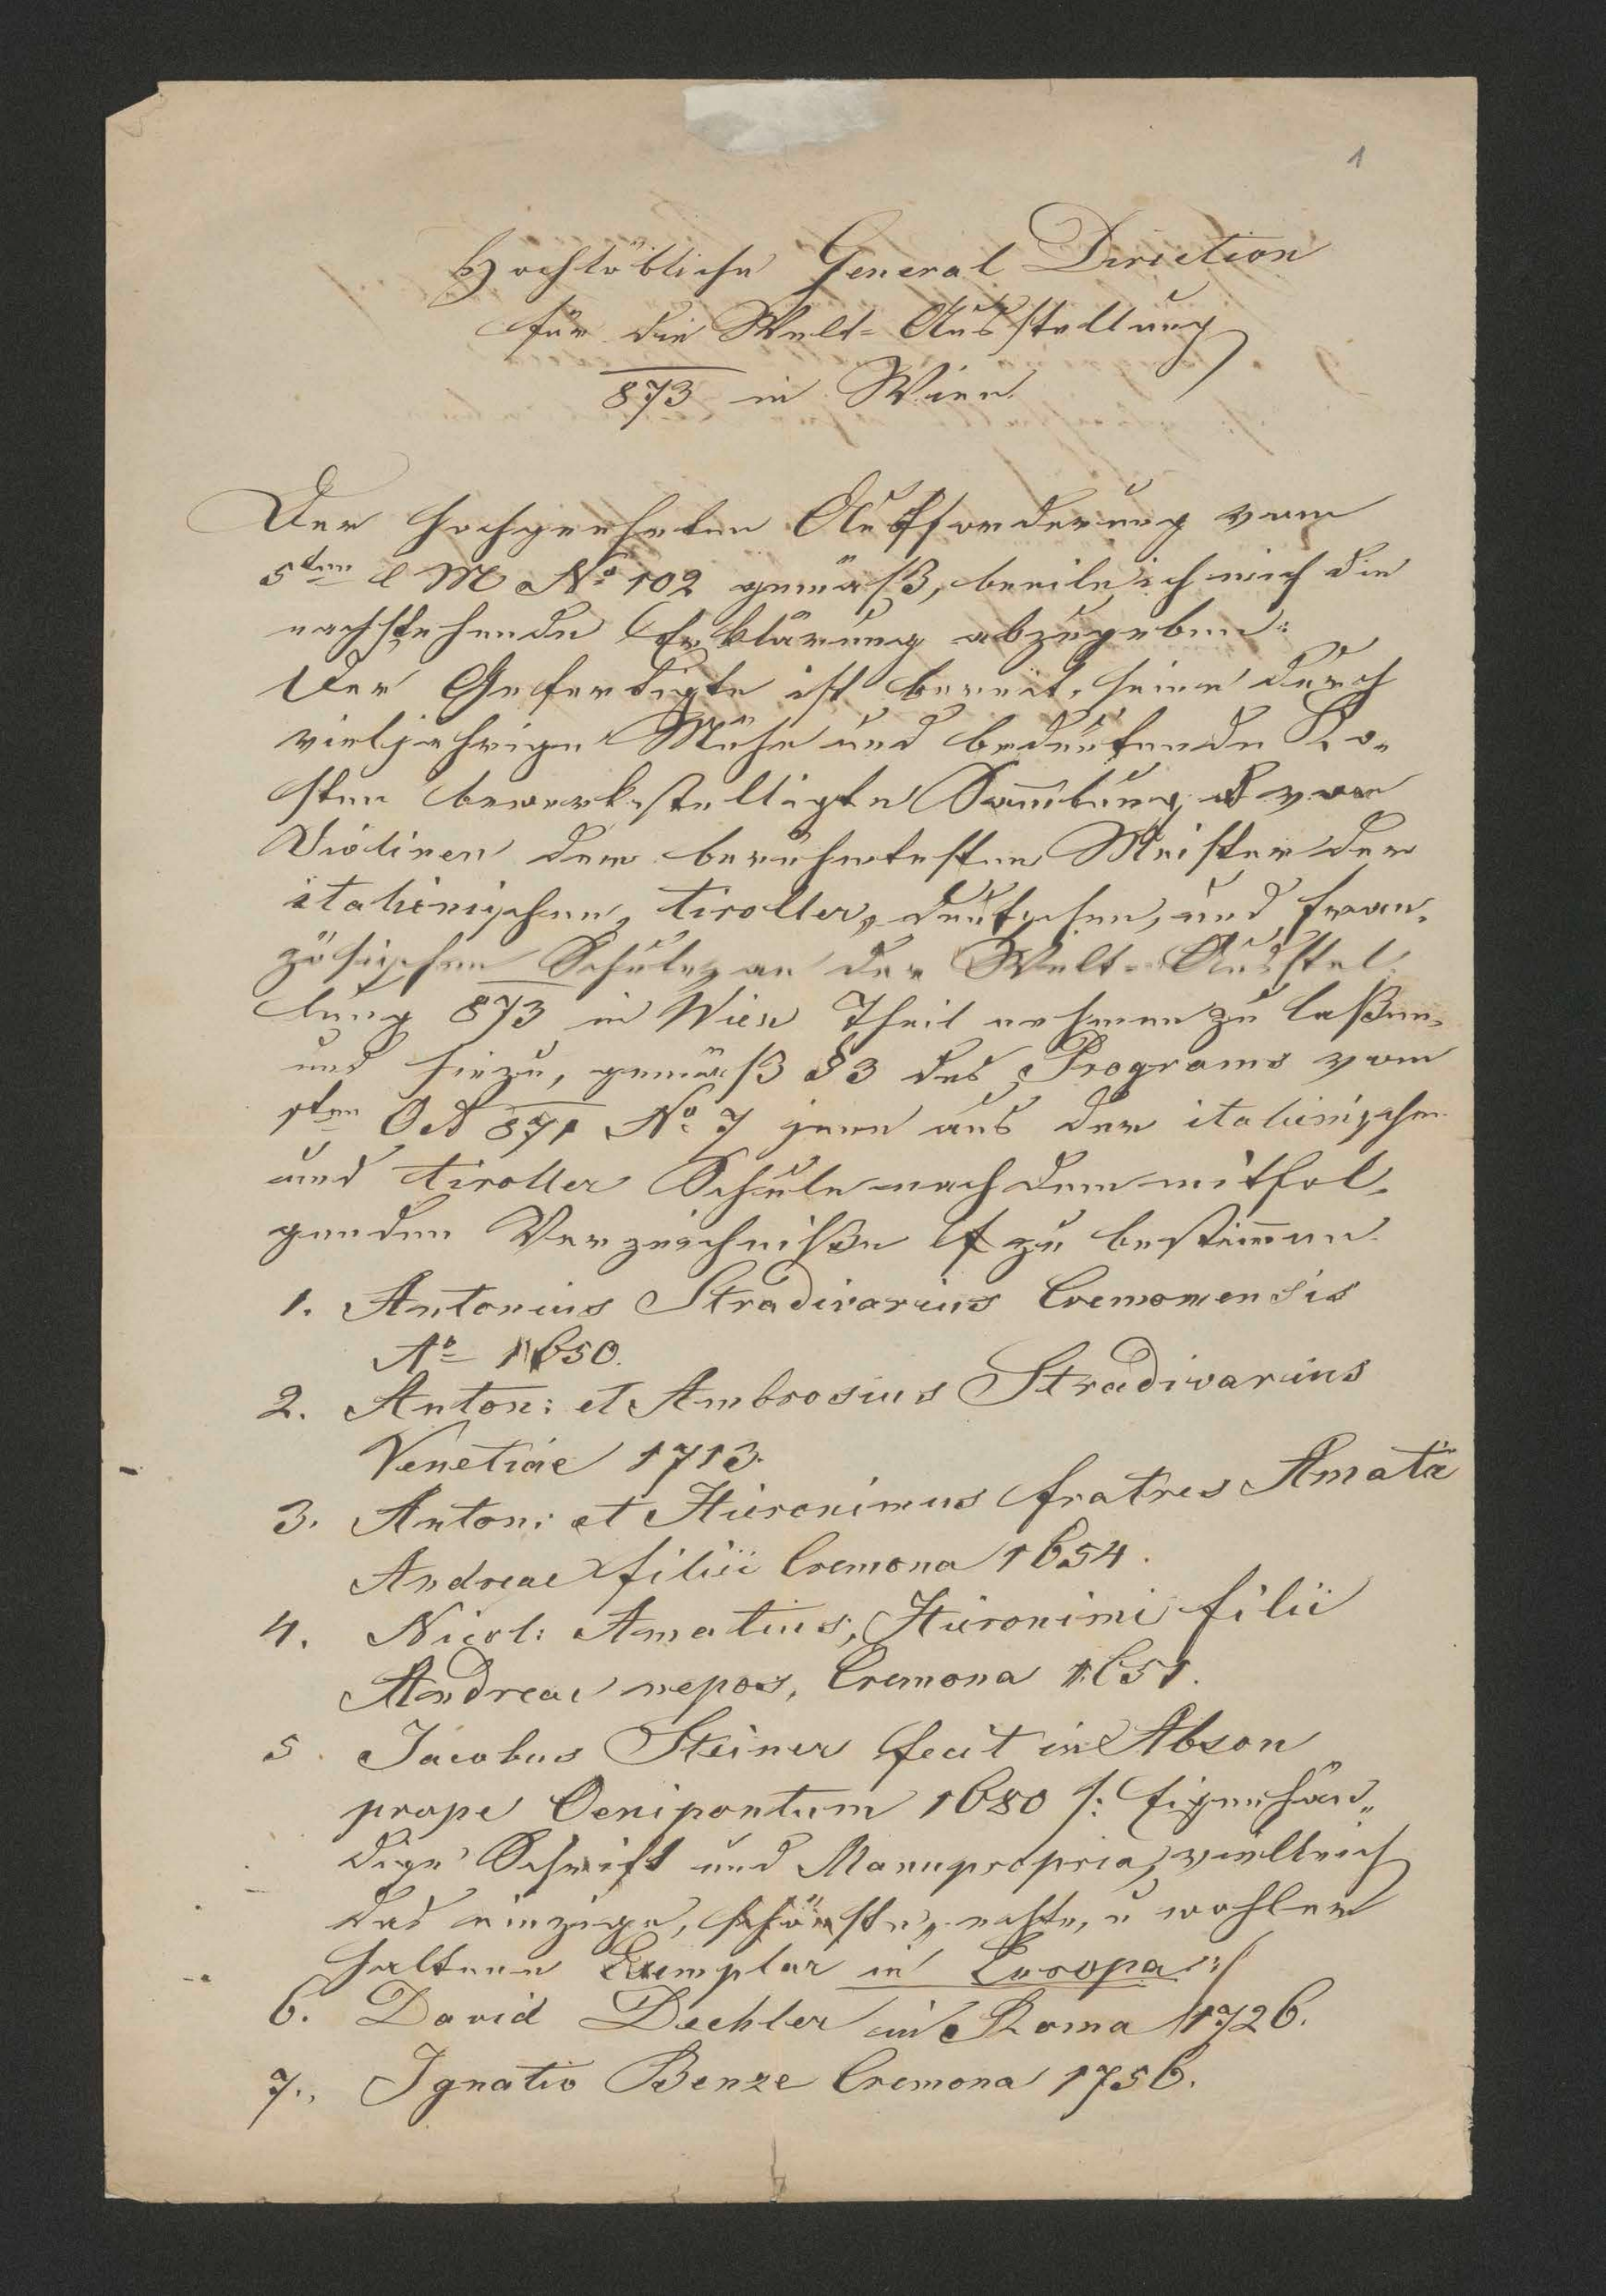 1
Hochlöbliche General Direction
für die Welt-Ausstellung
873 in Wien
Der hochgeehrten Aufforderung vom
5ten l M No 102 gemäß, beeile ich mich die
nachstehende Erklärung abzugeben:
Der Gefertigte ist bereit, seine durch
vieljährige Mühe und bedeutende Ko-
sten bewerkstelligte Sam̄lung von
Violinen der berühmtesten Meister der
italienischen, tiroller, deutschen, und fran-
zösischen Schule, an der Welt-Ausstel
lung 873 in Wien Theil nehmen zu laßen,
und hiezu, gemäß § 3 des Programs vom
871 No 7 jene aus der italienischen
und tiroller Schule nach dem mitfol-
genden Verzeichniße zu bestim̄en.
1. Antonius Stradivarius Cremonensis
Ao 1650.
2. Anton: et Ambrosius Stradivarius
Venetiae 1713.
3. Anton: et Hieronimus fratres Amati
Andreae filii Cremona 1654.
4. Nicol: Amatius, Hieronimi filii
Andreae nepos, Cremona 1651.
5. Jacobus Steiner fecit in Abson
prope Oenipontum 1680 /: Eigenhän-
dige Schrift und Manupropria, vielleich
das einzige, schönste, echte, u wohler
haltene Exemplar in Europa :/
6. David Dechler in Roma 1726.
7., Ignatio Benze Cremona 1756.